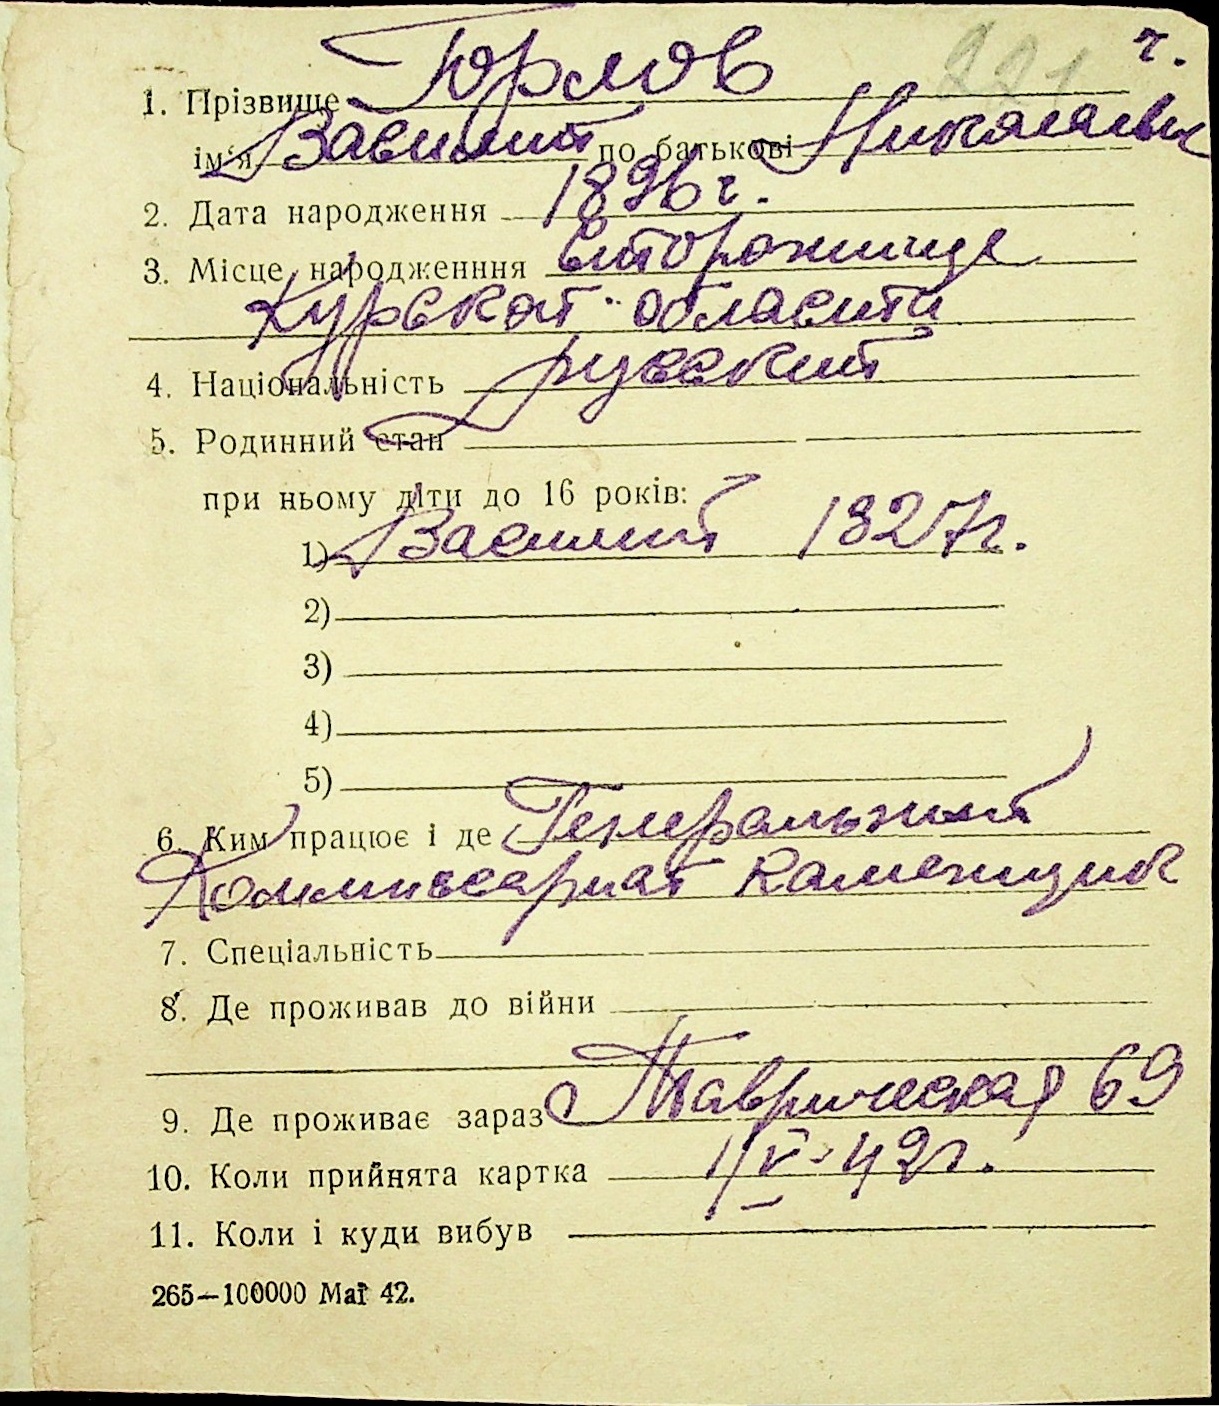 ч.
221
1. Прізвище Юрлов
ім'я Василий по батькові Николаевич
2. Дата народження 1896 г.
3. Місце народженння Сторожище
Курской области
4. Національність русский
5. Родинний стан
при ньому діти до 16 років:
1) Василий 1927г.
2)
3)
4)
5)
6. Ким працює і де Генеральний
Коммисариат каменщик
7. Спеціальність
8. Де проживав до війни
9. Де проживає зараз Таврическая 69
10. Коли прийнята картка 1/V-42г.
11. Коли і куди вибув
265—100000 Маї 42.